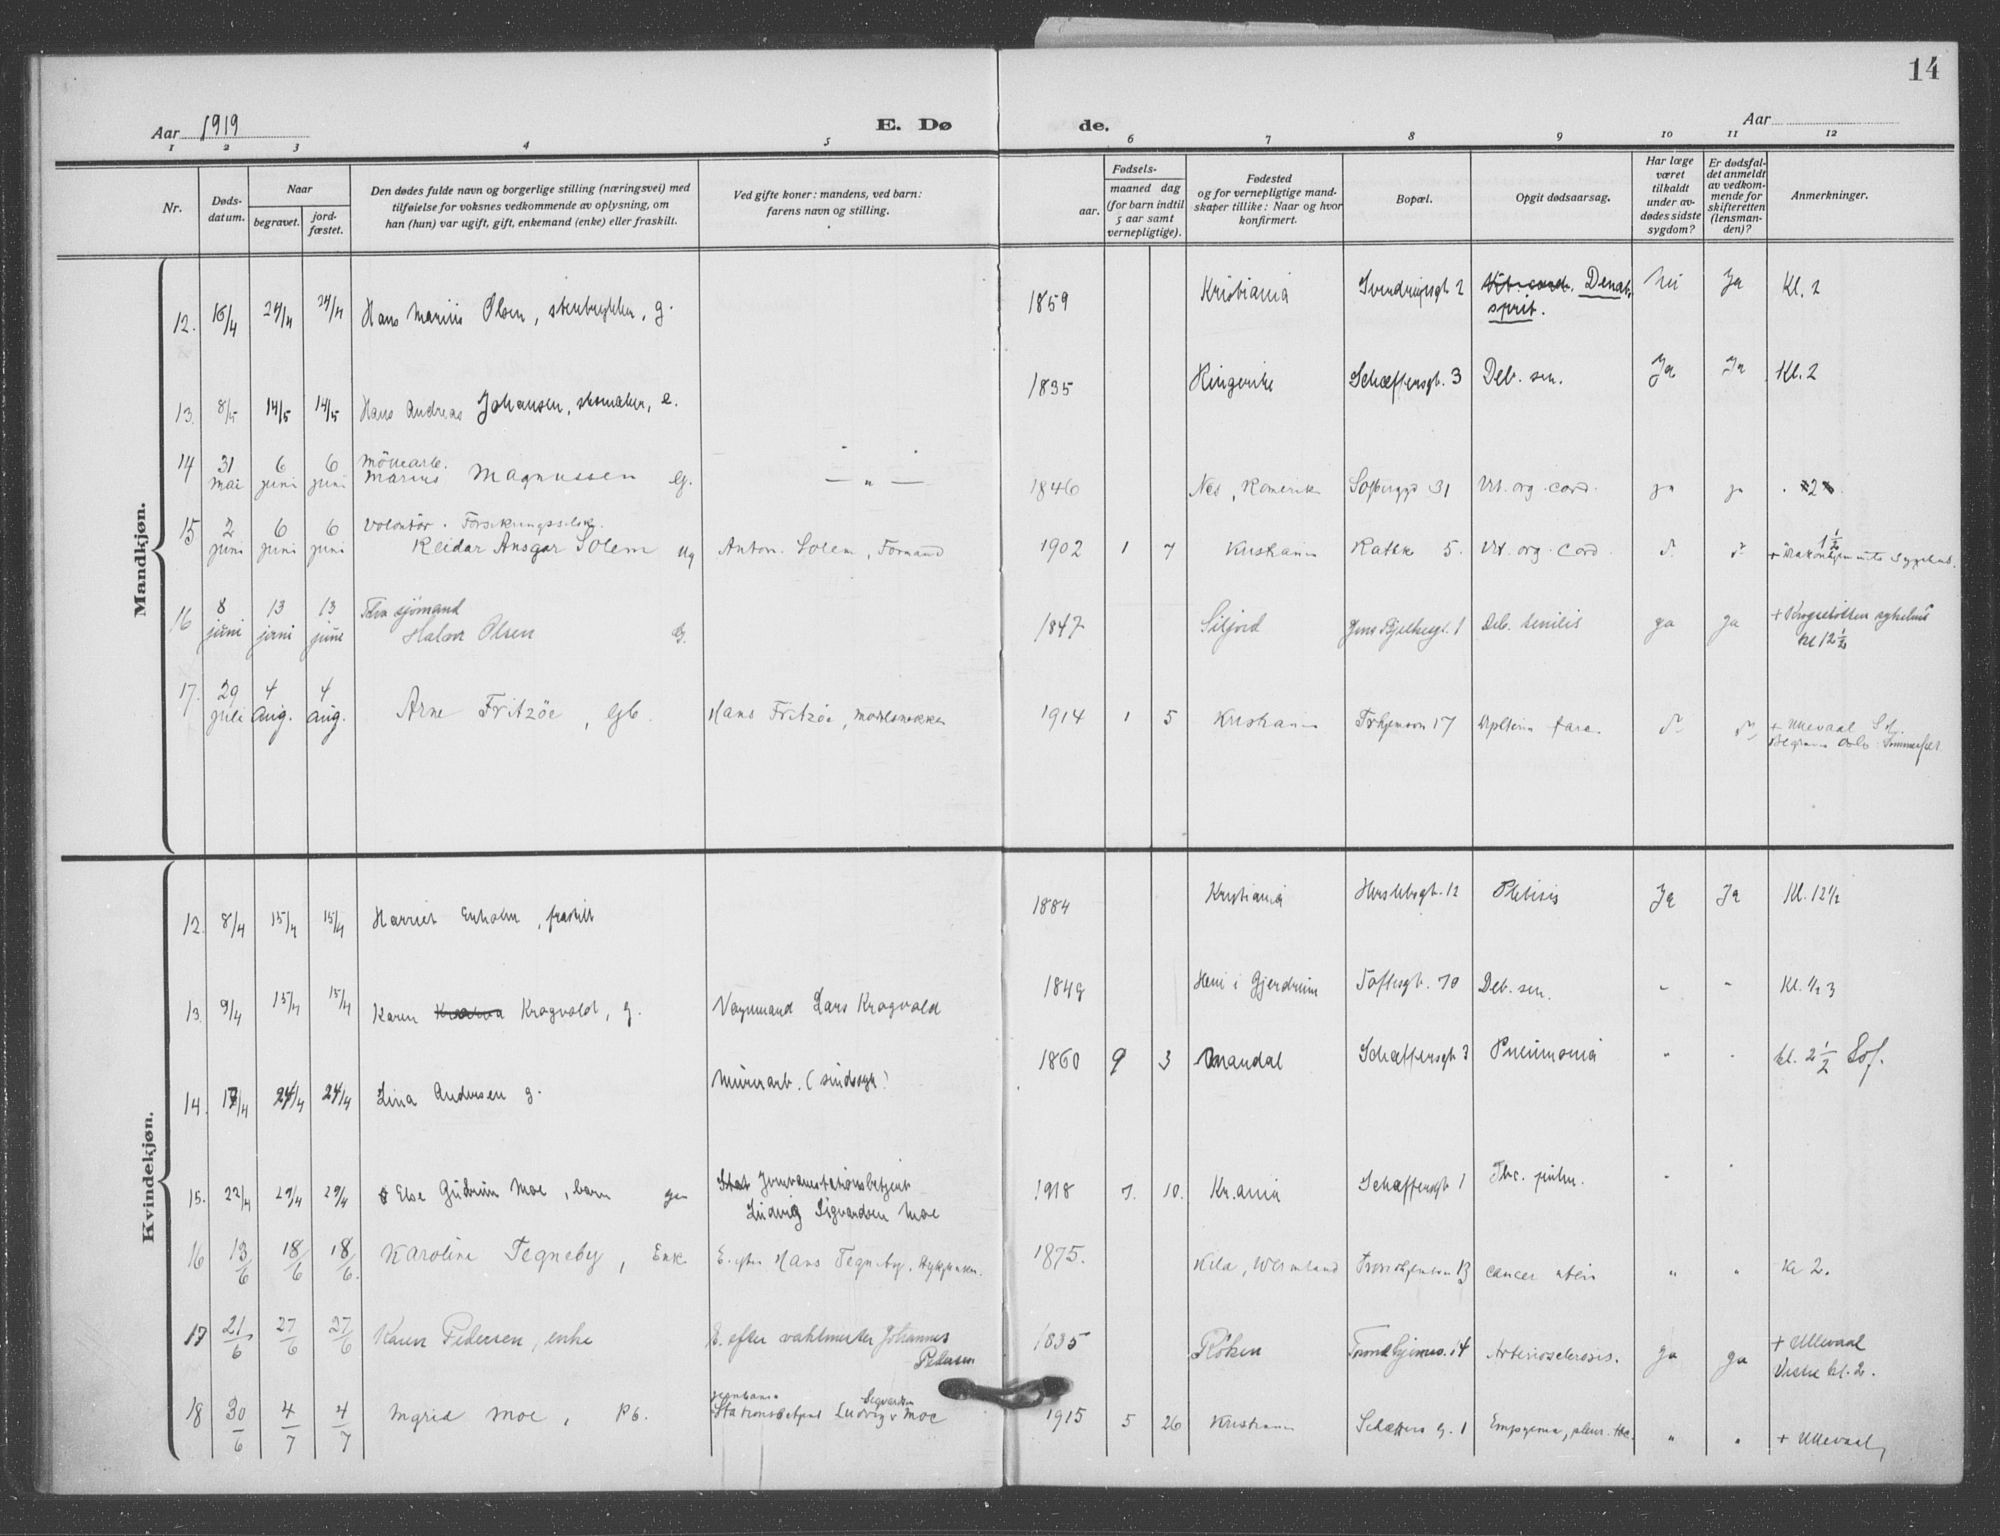 14
Aar 1919
E. Dø
de.
Aar
1 2 3 4 5 6 7 8 9 10 11 12
Nr.
Døds-
datum.
Naar
begravet.
jord-
fæstet.
Den dødes fulde navn og borgerlige stilling (næringsvei) med
tilføielse for voksnes vedkommende av oplysning, om
han (hun) var ugift, gift, enkemand (enke) eller fraskilt.
Ved gifte koner: mandens, ved barn:
farens navn og stilling.
Fødsels-
aar.
maaned dag
(for barn indtil
5 aar samt
vernepligtige).
Fødested
og for vernepligtige mand-
skaper tillike: Naar og hvor
konfirmert.
Bopæl.
Opgit dødsaarsag.
Har læge
været
tilkaldt
under av-
dødes sidste
sygdom?
Er dødsfal-
det anmeldt
av vedkom-
mende for
skifteretten
(lensman-
den)?
Anmerkninger.
Mandkjøn.
12. 16/4 24/4 24/4 Hans Marius Olsen, g. 1859 Kristiania Sverdrupsgt 2 Denat. Nei Ja Kl. 2
sprit.
13. 8/5 14/5 14/5 Hans Andreas Johansen, skomaker, e. 1835 Ringerike Schæffersgt. 3 Deb. sen. Ja Ja Kl. 2
14 31 6 6
mai juni juni Marius Magnussen g. — „ — 1846 Nes, Romerike 31 Vit. org. cord. ja ja 2
15 2 6 6 Volontør
juni juni juni Reidar Ansgar Solem ug Anton Solem, Formand 1902 1 7 Kristiania 5. Vit. org. cord. 1½
16 8 13 13 sjömand
juni juni juni Halvor Olsen g. 1847 Siljord Jens Bjelkesgt. 1 Deb. senilis ja ja + Krogstøtten sykehus
kl 12½
17. 29 4 4
juli aug. aug. Arne Fritzöe, Hans Fritzöe, 1914 1 5 Kristiania 17 + Ullevaal
Kvindekjøn.
12. 8/4 15/4 15/4 Harriet Enholm, fraskilt 1884 Kristiania Herslebsgt. 12 Phtisis Ja Ja Kl. 12½
13. 9/4 15/4 15/4 Karen Kragvold, g. Vognmand Lars Kragvold 1849 i Gjerdrum Toftesgt. 70 Deb. sen. - - Kl. ½ 3
14. 17/4 24/4 24/4 Lina Andersen g. Murerarb. (sindssyk) 1860 9 3 Mandal Schæffersgt 3 Pneumonia kl. 2½ Sof.
15. 22/4 29/4 29/4 Else Gudrun Moe, barn Jernbanestationsbetjent
Ludvig Sigvardsen Moe 1918 7. 10. Kr.ania Schæffersgt 1 Tbc. pulm.
16 13/6 18/6 18/6 Karoline Tegneby, Enke E. efter Hans Tegneby, 1875. Kila, Wermland 13 cancer uteri „ „ Kl 2.
17 21/6 27/6 27/6 Karen Pedersen, enke E. efter vahtmester Johannes
Pedersen 1835 Röken 14 Arteriosclerosis. ja ja + Ullevaal
kl. 2.
18 30/6 4/7 4/7 Ingrid Moe, Pb. jernbane
Stationsbetjent Ludvig Sigvardsen Moe 1915 5 26 Kristiania Schæffers g. 1 Empyema, pleur. tbc. „ „ + Ullevaal